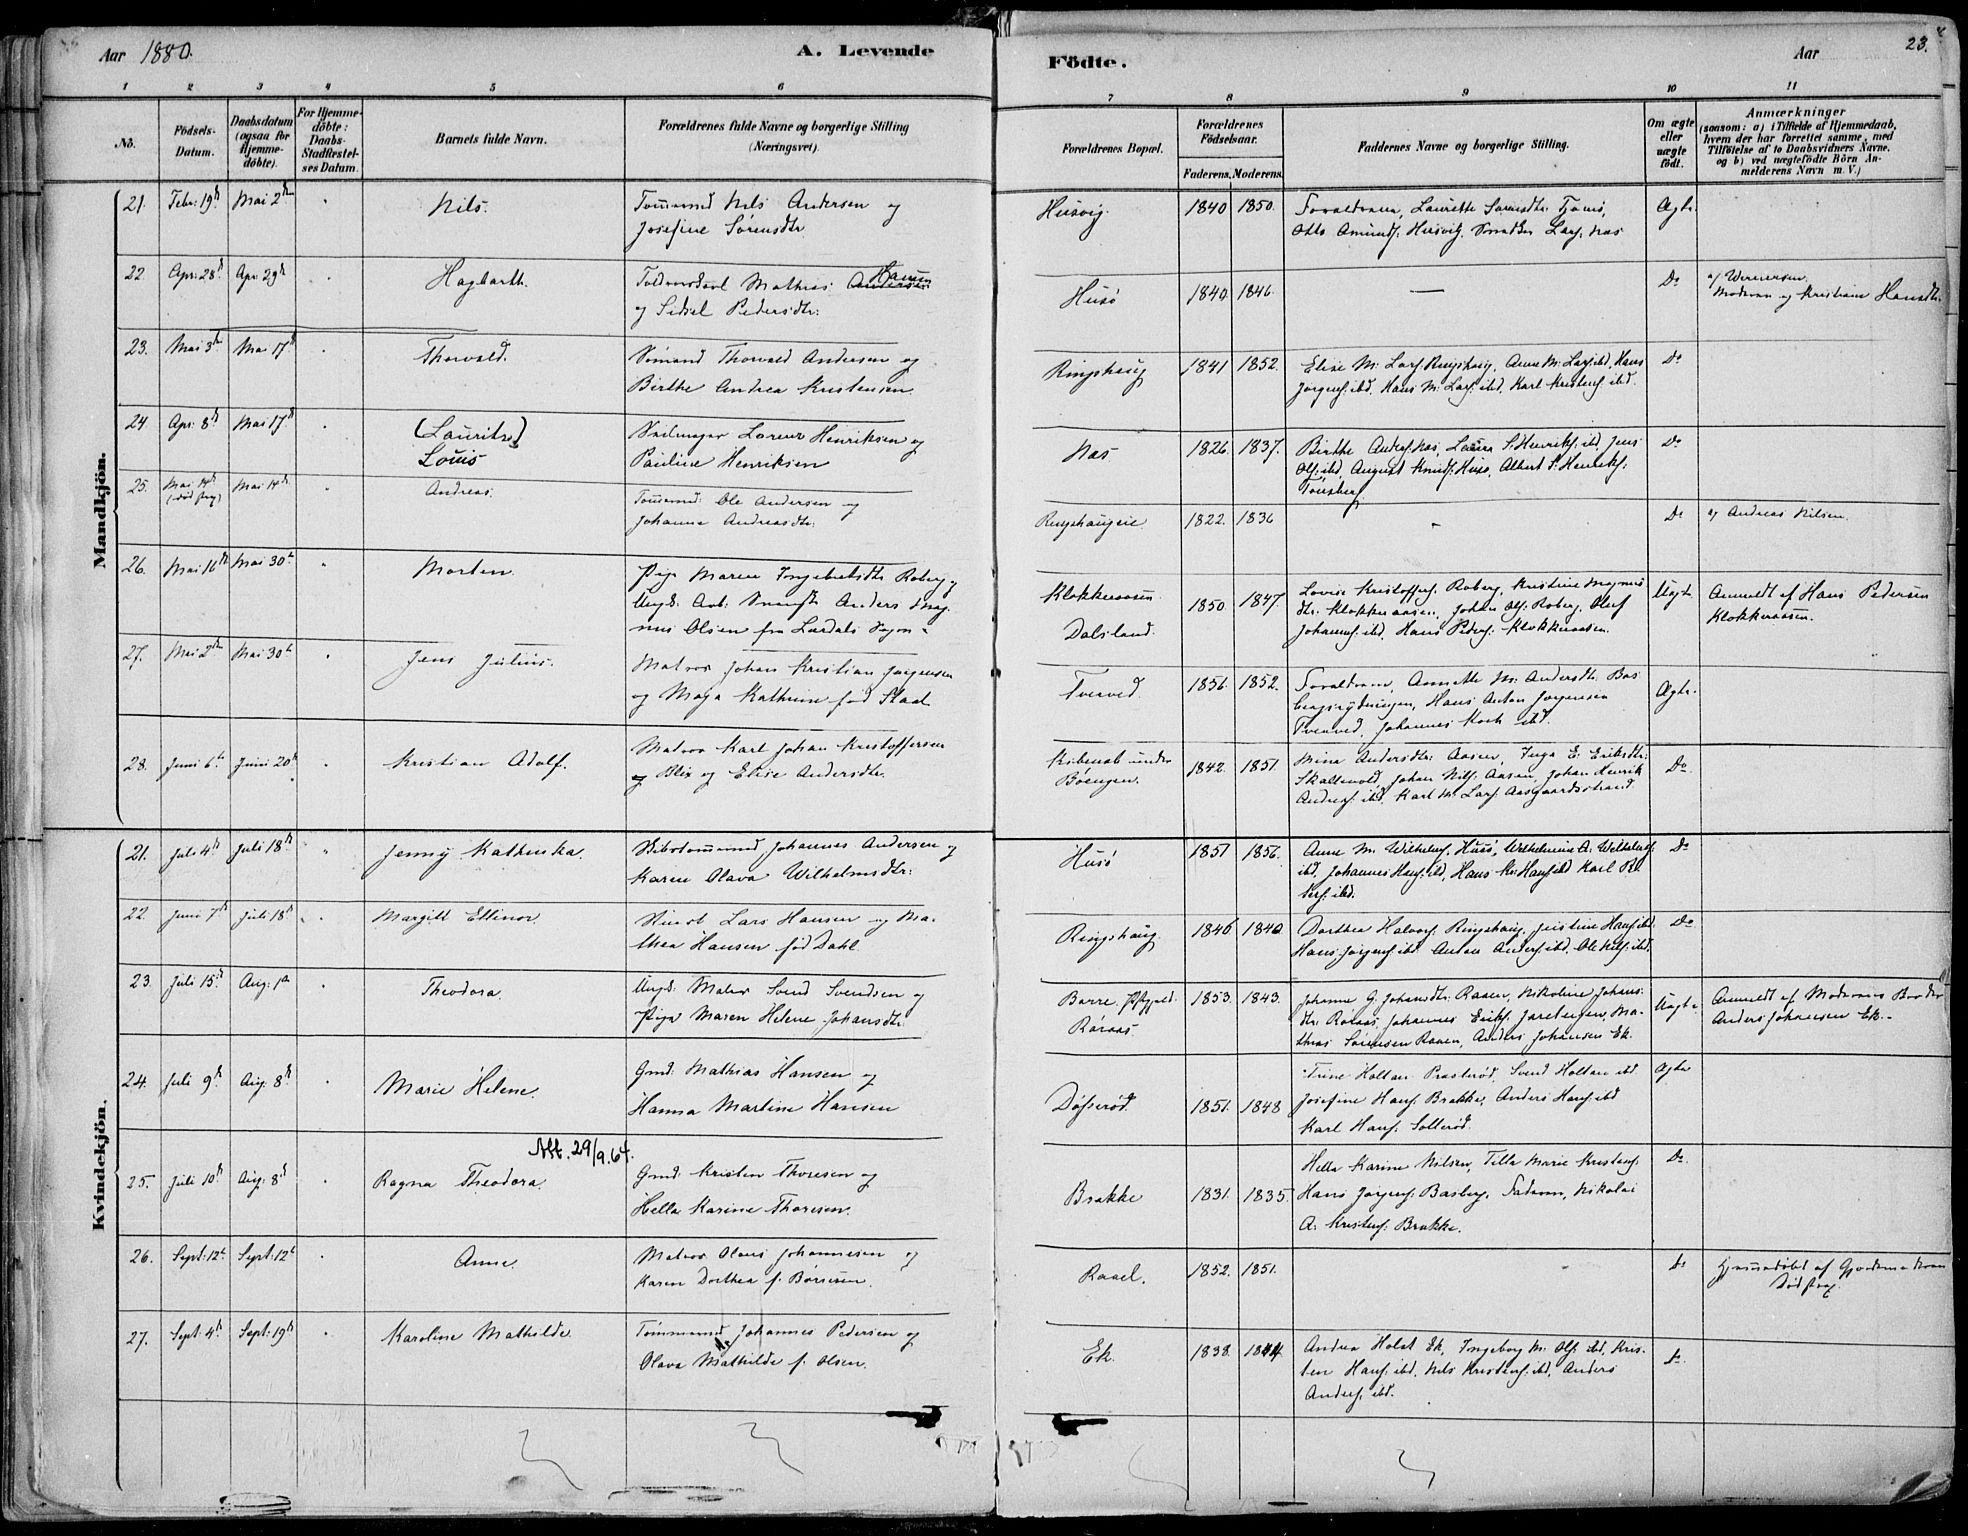 Aar 1880.
A. Levende
Födte.
Aar
23.
1 2 3 4 5 6 7 8 9 10 11
No.
Födsels-
Datum.
Daabsdatum
(ogsaa for
Hjemme-
döbte).
For Hjemme-
döbte:
Daabs-
Stadfæstel-
ses Datum.
Barnets fulde Navn.
Forældrenes fulde Navne og borgerlige Stilling
(Næringsvei).
Forældrenes Bopæl.
Forældrenes
Födselsaar.
Faderens. Moderens.
Faddernes Navne og borgerlige Stilling.
Om ægte
eller
uægte
födt.
Anmærkninger
(saasom: a) i Tilfælde af Hjemmedaab,
hvem der har forrettet samme, med
Tilföielse af to Daabsvidners Navne,
og b) ved uægtefödte Börn An-
melderens Navn m. V.)
Mandkjön.
21. Febr: 19de Mai 2den
Nils.
Tømmermd Nils Andersen og
Josefine Sørensdtr.
Husvig. 1840 1850.
Forældrene, Laurette Sørensdtr: Tjømø,
Otto Amunds: Husvig,
Ægte.
22. Apr: 28de Apr: 29de
Hagbarth.
Mathias Andersen Hansen
og Sidsel Pedersdtr:
Husø 1840. 1846.
—
Do
Moderen og Kristiane Hansdtr.
23. Mai 3die Mai 17de
Thorvald.
Sømand Thorvald Andersen og
Birthe Andrea Kristensen.
Ringshaug 1841 1852.
Elise M: Lars: Ringshaug, Anne M: Lars: ibd, Hans
Jørgens: ibd, Hans M: Lars: ibd, Karl Kristens: ibd.
Do
24 Apr: 8de Mai 17de
(Lauritze)
Louis
Seilmager Lorens Henriksen og
Pauline Henriksen
Næs 1826. 1837.
Birthe Anders: Næs, Laura S. Henriks: ibd, Jens
Ols: ibd, August Knuds: Husø, Albert S: Henriks:
Tønsberg
Do
25. Mai 14de Mai 14de
(død strax)
Andreas.
Tømmermd: Ole Andersen og
Johanne Andreasdtr:
Ringshaugeie 1822. 1836
Do
af Andreas Nilsen.
26. Mai 16de Mai 30te
Morten.
Pige Maren Ingebretsdtr Roberg og
Ungk: Arb: Anders Mag-
nus Olsen fra Lardals Sogn.
Klokkeraasen
Dalsland. 1850. 1847.
Lovise Kristoffers: Roberg, Kristine Magnus
dtr: Klokkeraasen, Johan Ols: Roberg, Oluf
Johanns: ibd, Hans Peders: Klokkeraasen.
Uægte
Anmeldt af Hans Pedersen
Klokkeraasen.
27. Mai 2den Mai 30te
Jens Julius.
Matros Johan Kristian Jørgensen
og Maja Kathrine fød Staal
Tverved. 1856. 1852.
Forældrene, Annette M: Andersdtr: Bas
bergsrydningen, Hans Anton Jørgensen
Tverved, Johannes Koch ibd.
Ægte.
28. Juni 6te Juni 20de
Kristian Adolf.
Matros Karl Johan Kristoffersen
og Blix og Elise Andersdtr.
under
Bøengen. 1842. 1851.
Mina Andersdtr: Aasen, Inga E. Eriksdtr:
Skallevold, Johan Nils: Aasen, Johan Henrik
Anders: ibd, Karl M: Lars: Aasgaardsstrand
Do
Kvindekjön.
21. Juli 4de Juli 18de
Jenny Kathinka.
Skibstømmermd Johannes Andersen og
Karen Olava Wilhelmsdtr:
Husø 1851 1856.
Anne M: Wilhelms: Husø, Wilhelmine A: Wilhelms:
ibd, Johannes Hans: ibd, Hans Kr: Hans: ibd Karl Pe
ters: ibd.
Do
22. Juni 7de Juli 18de
Margitt Ellinor.
Lars Hansen og Ma-
thea Hansen fød Dahl.
Ringshaug. 1846 1840.
Dorthea Halvors: Ringshaug, Justine Hans: ibd
Hans Jørgens: ibd Anton Anders: ibd, Ole Nils: ibd.
Do
23. Juli 15de Aug: 1ste
Theodora.
Ungk: Matros Svend Svendsen og
Pige Maren Helene Johansdtr:
Borre Præstgjeld.
Røraas 1853. 1843.
Johanne G: Johansdtr: Raaen, Nikoline Johans-
dtr: Røraas, Johannes Eriks: Jarebergen, Ma-
thias Sørensen Raaen, Anders Johansen Ek.
Uægte.
Anmeldt af Moderens Broder
Anders Johansen Ek.
24. Juli 9de Aug: 8de
Marie Helene.
Gmd: Mathias Hansen og
Hanna Martine Hansen
Døsserød. 1851. 1848
Trine Holtan Præsterød, Svend Holtan ibd
Josefine Hans: Brække, Anders Hans: ibd
Karl Hans: Solterød.
Ægte
25. Juli 10de Aug: 8de
Att. 29/9.64.
Ragna Theodora.
Gmd: Kristen Thoresen og
Hella Karine Thoresen.
Brække 1831. 1835.
Hella Karine Nilsen, Tilla Marie Kristens:
Hans Jørgens: Basberg, Faderen, Nikolai
A: Kristens: Brække.
Do.
26. Sept: 12te Sept: 12te
Anne.
Matros Olaus Johannesen og
Karen Dorthea f. Børresen.
Raael. 1852. 1851.
Do
Hjemmedøbt af Gjordemoderen
Død strax.
27. Sept: 4de Sept: 19de
Karoline Mathilde.
Tømmermd Johannes Pedersen og
Olava Mathilde f. Olsen.
Ek. 1838. 1844.
Andrea Holst Ek, Ingeborg M: Ols: ibd, Kris-
ten Hans: ibd, Nils Kristens: ibd, Anders
Anders: ibd.
Do.